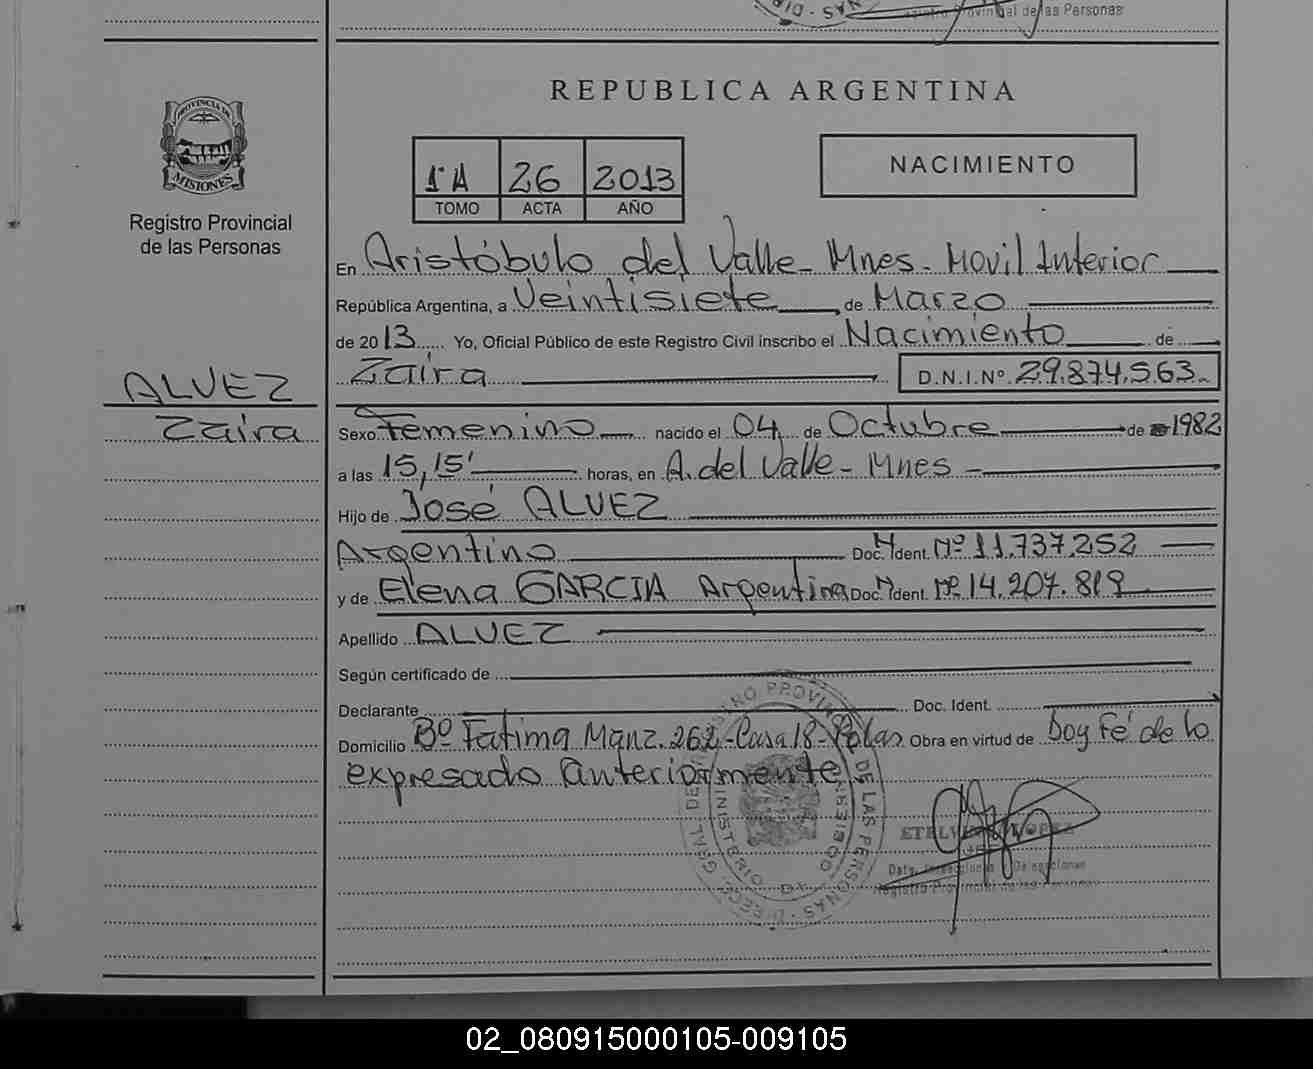 Provincial de las Personas
REPUBLICA ARGENTINA
PROVINCIA DE
MISIONES
Registro Provincial
de las Personas
1ºA 26 2013
TOMO ACTA AÑO
NACIMIENTO
En Aristóbulo del Valle - Mnes. Movil Interior
República Argentina, a Veintisiete de Marzo
de 2013 Yo, Oficial Público de este Registro Civil inscribo el Nacimiento de
Zaira D.N.I.Nº 29.874.563
ALVEZ
Zaira
Sexo Femenino nacido el 04 de Octubre de 1982
a las 15,15' horas, en A. del Valle - Mnes
Hijo de José ALVEZ
Argentino Doc. Ident. Nº 11.737.252
y de Elena GARCIA Argentina Doc. Ident. Nº 14.207.819
Apellido ALVEZ
Según certificado de
Declarante Doc. Ident.
Domicilio Bº Fatima Manz. 262 - Casa 18 - Pdas Obra en virtud de Doy Fé de lo
expresado anteriormente.
02_080915000105-009105